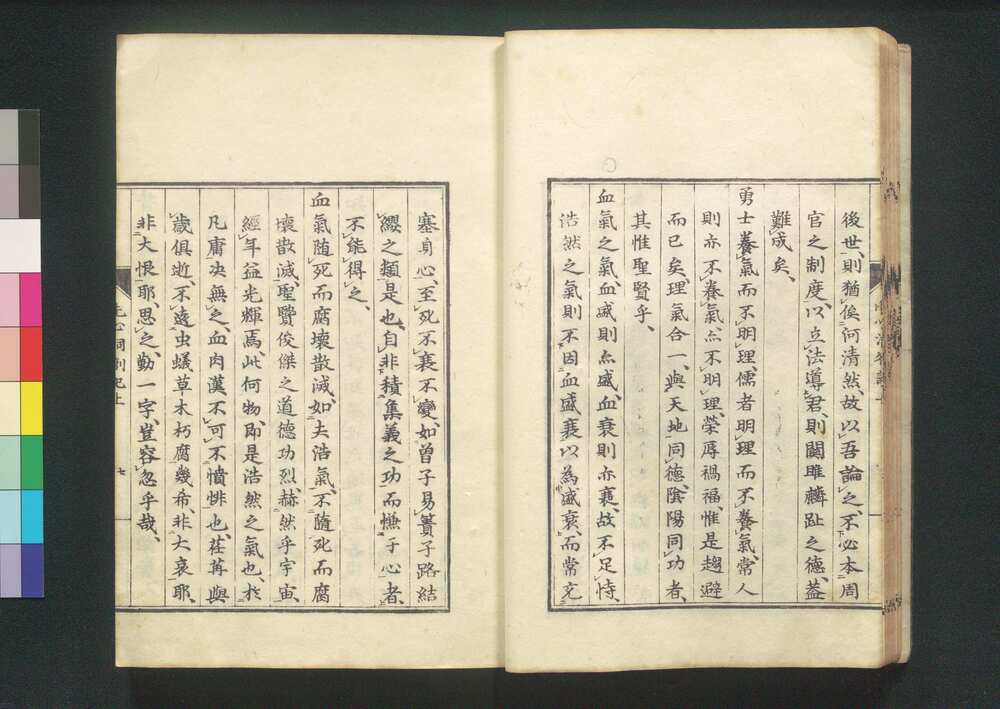 後世、則猶俟河清然、故以吾論之、不必本周
官之制度、以立法導君、則關雎麟趾之德、蓋
難成矣、
勇士養氣而不明理、儒者明理而不養氣、常人
則亦不養氣、亦不明理、榮辱禍福、惟是趨避
而已矣、理氣合一、與天地同德、陰陽同功者、
其惟聖賢乎、
血氣之氣、血盛則亦盛、血衰則亦衰、故不足恃、
浩然之氣則不因血盛衰以為盛衰、而常充
塞身心、至死不衰不變、如曾子易簀子路結
纓之類是也、自非積集義之功而慊于心者、
不能得之、
血氣隨死而腐壞散滅、如夫浩氣、不隨死而腐
壞散滅、聖賢俊傑之道德功烈、赫然乎宇宙、
經年益光輝焉、此何物、即是浩然之氣也、於
凡庸決無之、血肉漢不可不憤悱也、荏苒與
歲俱逝、不遠虫蟻草木朽腐幾希、非大哀耶、
非大恨耶、思之、勤一字、豈容忽乎哉、
洗心洞劄記上
七